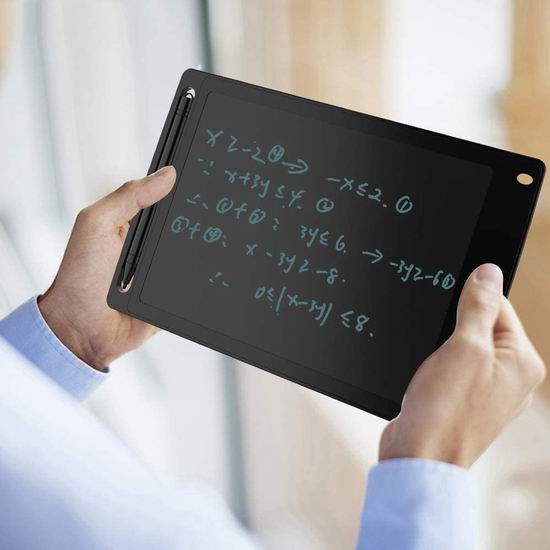 x≥-2④→ -x≤2. ①
∵ x+3y≤4. ②
∴ ①+②: 3y≤6. → -3y≥-6③
③+④: x-3y≥-8.
∴ 0≤|x-3y|≤8.